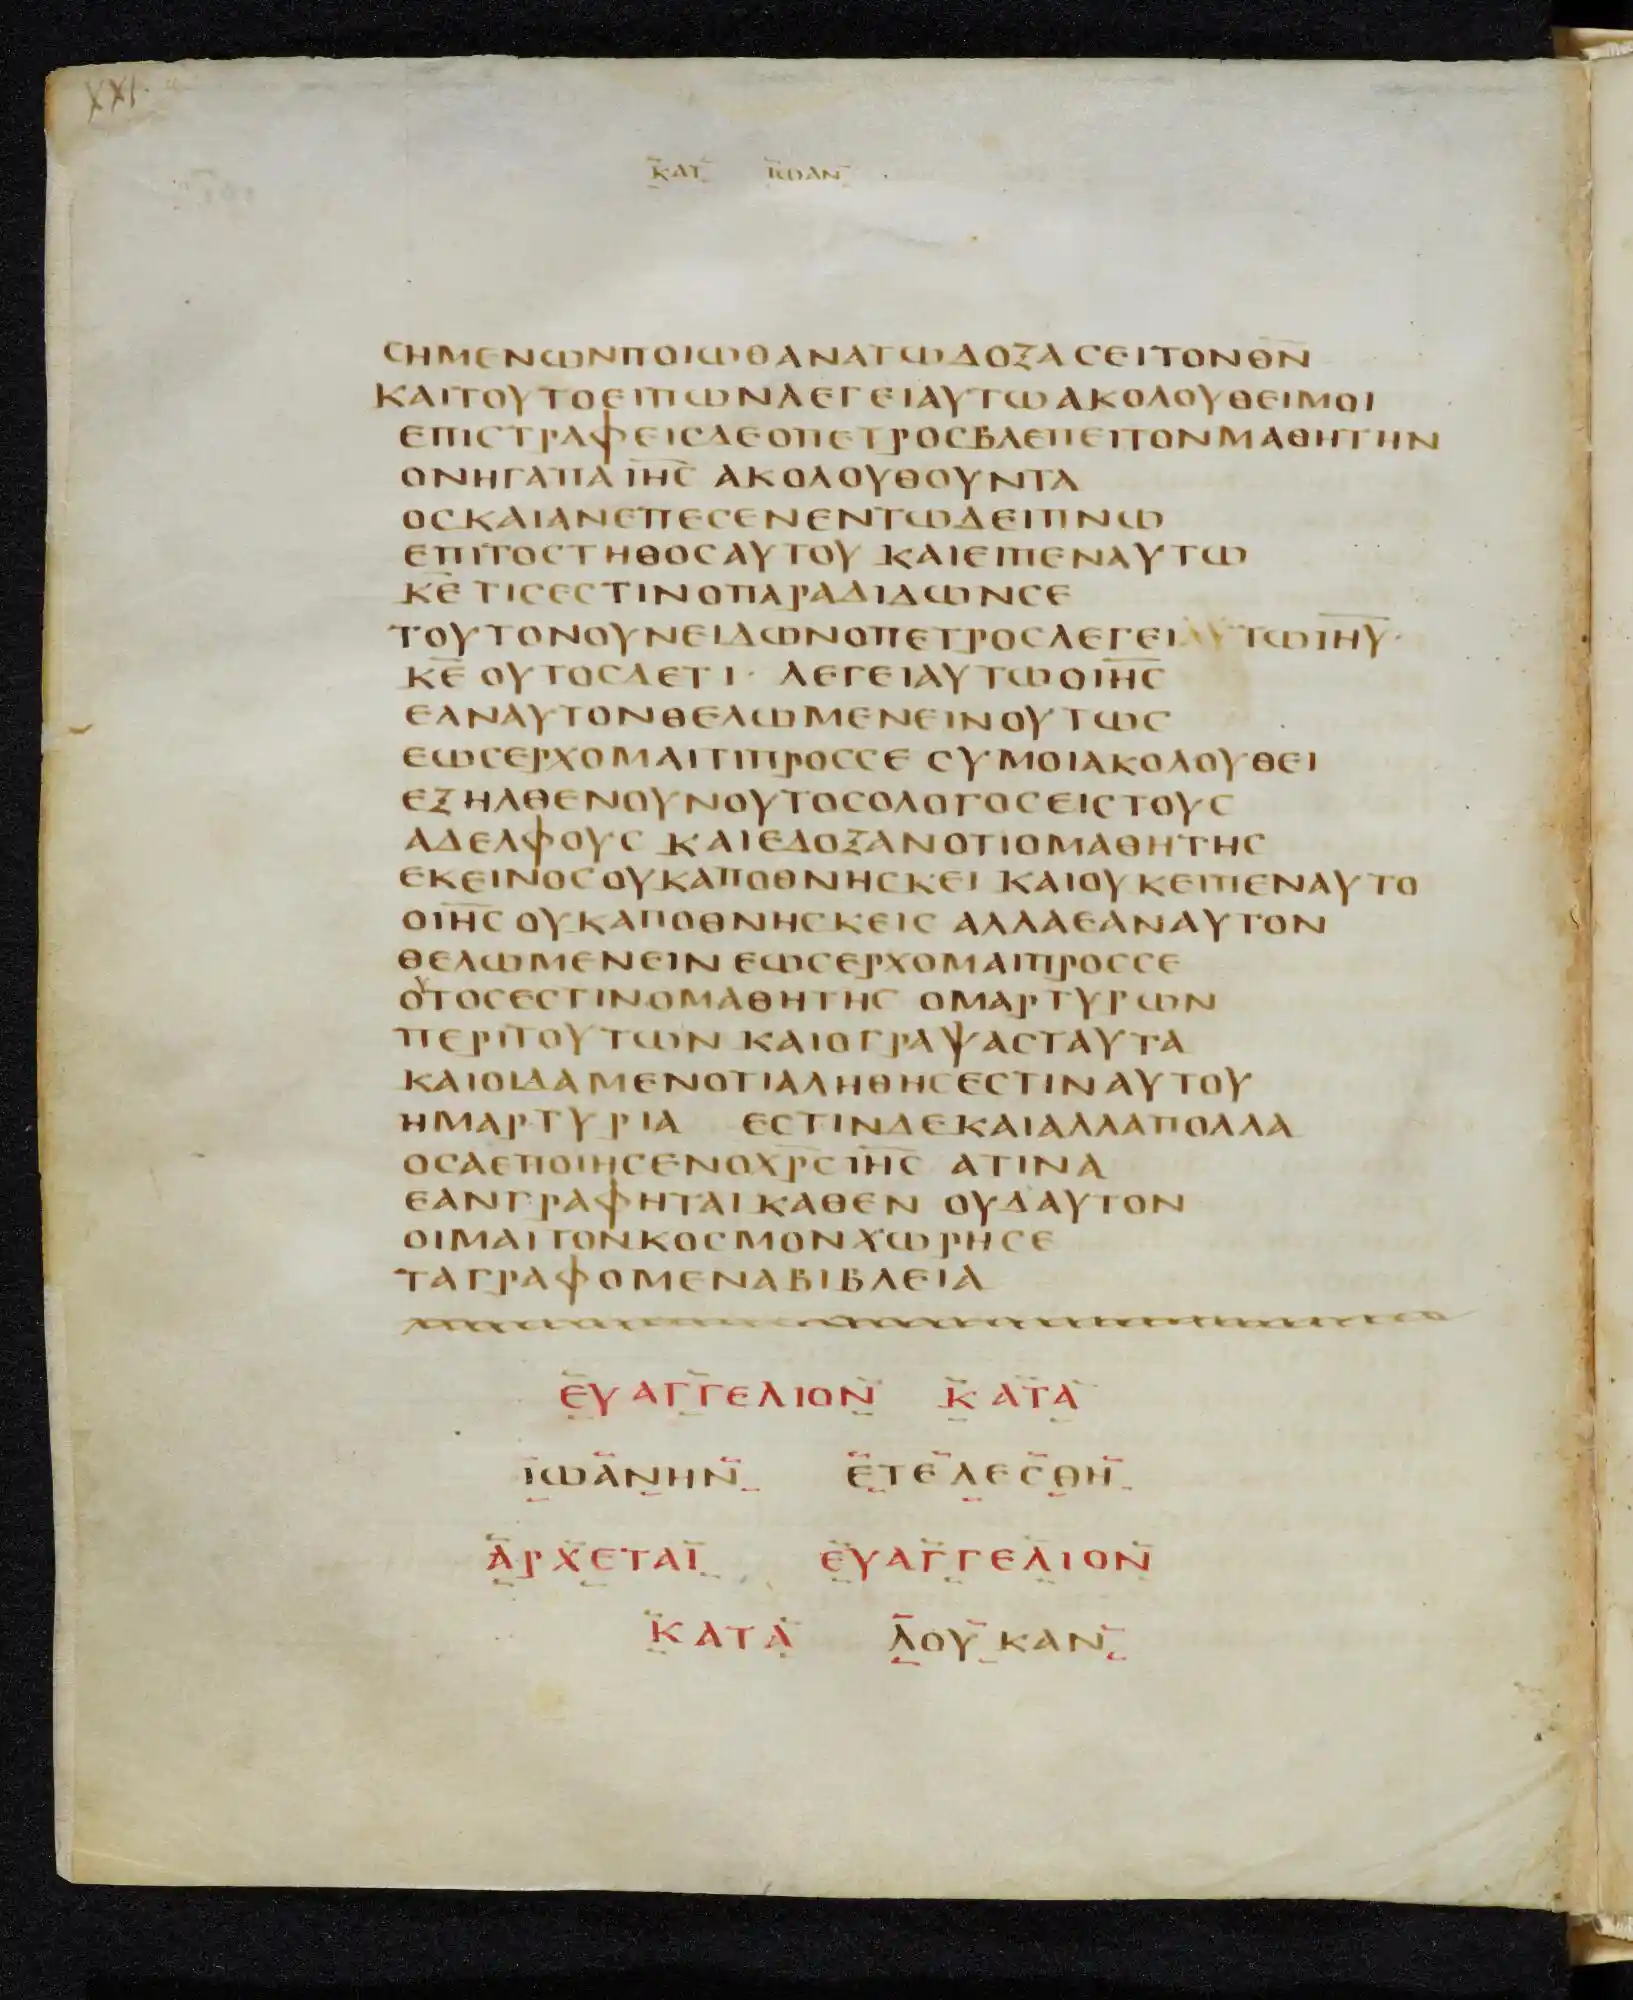 XXI.
ΚΑΤ ΙΩΑΝ
ϹΗΜΕΝΩΝΠΟΙΩΘΑΝΑΤΩΔΟΞΑϹΕΙΤΟΝΘ̅Ν̅
ΚΑΙΤΟΥΤΟΕΙΠΩΝΛΕΓΕΙΑΥΤΩΑΚΟΛΟΥΘΕΙΜΟΙ
ΕΠΙϹΤΡΑΦΕΙϹΔΕΟΠΕΤΡΟϹΒΛΕΠΕΙΤΟΝΜΑΘΗΤΗΝ
ΟΝΗΓΑΠΑ Ι̅Η̅Ϲ̅ ΑΚΟΛΟΥΘΟΥΝΤΑ
ΟϹΚΑΙΑΝΕΠΕϹΕΝΕΝΤΩΔΕΙΠΝΩ
ΕΠΙΤΟϹΤΗΘΟϹΑΥΤΟΥ ΚΑΙΕΙΠΕΝΑΥΤΩ
Κ̅Ε̅ ΤΙϹΕϹΤΙΝΟΠΑΡΑΔΙΔΩΝϹΕ
ΤΟΥΤΟΝΟΥΝΕΙΔΩΝΟΠΕΤΡΟϹΛΕΓΕΙΑΥΤΩΙ̅Η̅Υ̅·
Κ̅Ε̅ ΟΥΤΟϹΔΕΤΙ· ΛΕΓΕΙΑΥΤΩΟΙ̅Η̅Ϲ̅
ΕΑΝΑΥΤΟΝΘΕΛΩΜΕΝΕΙΝΟΥΤΩϹ
ΕΩϹΕΡΧΟΜΑΙΤΙΠΡΟϹϹΕ ϹΥΜΟΙΑΚΟΛΟΥΘΕΙ
ΕΞΗΛΘΕΝΟΥΝΟΥΤΟϹΟΛΟΓΟϹΕΙϹΤΟΥϹ
ΑΔΕΛΦΟΥϹ ΚΑΙΕΔΟΞΑΝΟΤΙΟΜΑΘΗΤΗϹ
ΕΚΕΙΝΟϹΟΥΚΑΠΟΘΝΗϹΚΕΙ ΚΑΙΟΥΚΕΙΠΕΝΑΥΤΟ
ΟΙ̅Η̅Ϲ̅ ΟΥΚΑΠΟΘΝΗϹΚΕΙϹ ΑΛΛΑΕΑΝΑΥΤΟΝ
ΘΕΛΩΜΕΝΕΙΝ ΕΩϹΕΡΧΟΜΑΙΠΡΟϹϹΕ
ΟΥΤΟϹΕϹΤΙΝΟΜΑΘΗΤΗϹ ΟΜΑΡΤΥΡΩΝ
ΠΕΡΙΤΟΥΤΩΝ ΚΑΙΟΓΡΑΨΑϹΤΑΥΤΑ
ΚΑΙΟΙΔΑΜΕΝΟΤΙΑΛΗΘΗϹΕϹΤΙΝΑΥΤΟΥ
ΗΜΑΡΤΥΡΙΑ ΕϹΤΙΝΔΕΚΑΙΑΛΛΑΠΟΛΛΑ
ΟϹΑΕΠΟΙΗϹΕΝΟΧ̅Ρ̅Ϲ̅ Ι̅Η̅Ϲ̅ ΑΤΙΝΑ
ΕΑΝΓΡΑΦΗΤΑΙΚΑΘΕΝ ΟΥΔΑΥΤΟΝ
ΟΙΜΑΙΤΟΝΚΟϹΜΟΝΧΩΡΗϹΕ
ΤΑΓΡΑΦΟΜΕΝΑΒΙΒΛΕΙΑ
ΕΥΑΓΓΕΛΙΟΝ ΚΑΤΑ
ΙΩΑΝΗΝ ΕΤΕΛΕϹΘΗ
ΑΡΧΕΤΑΙ ΕΥΑΓΓΕΛΙΟΝ
ΚΑΤΑ ΛΟΥΚΑΝ